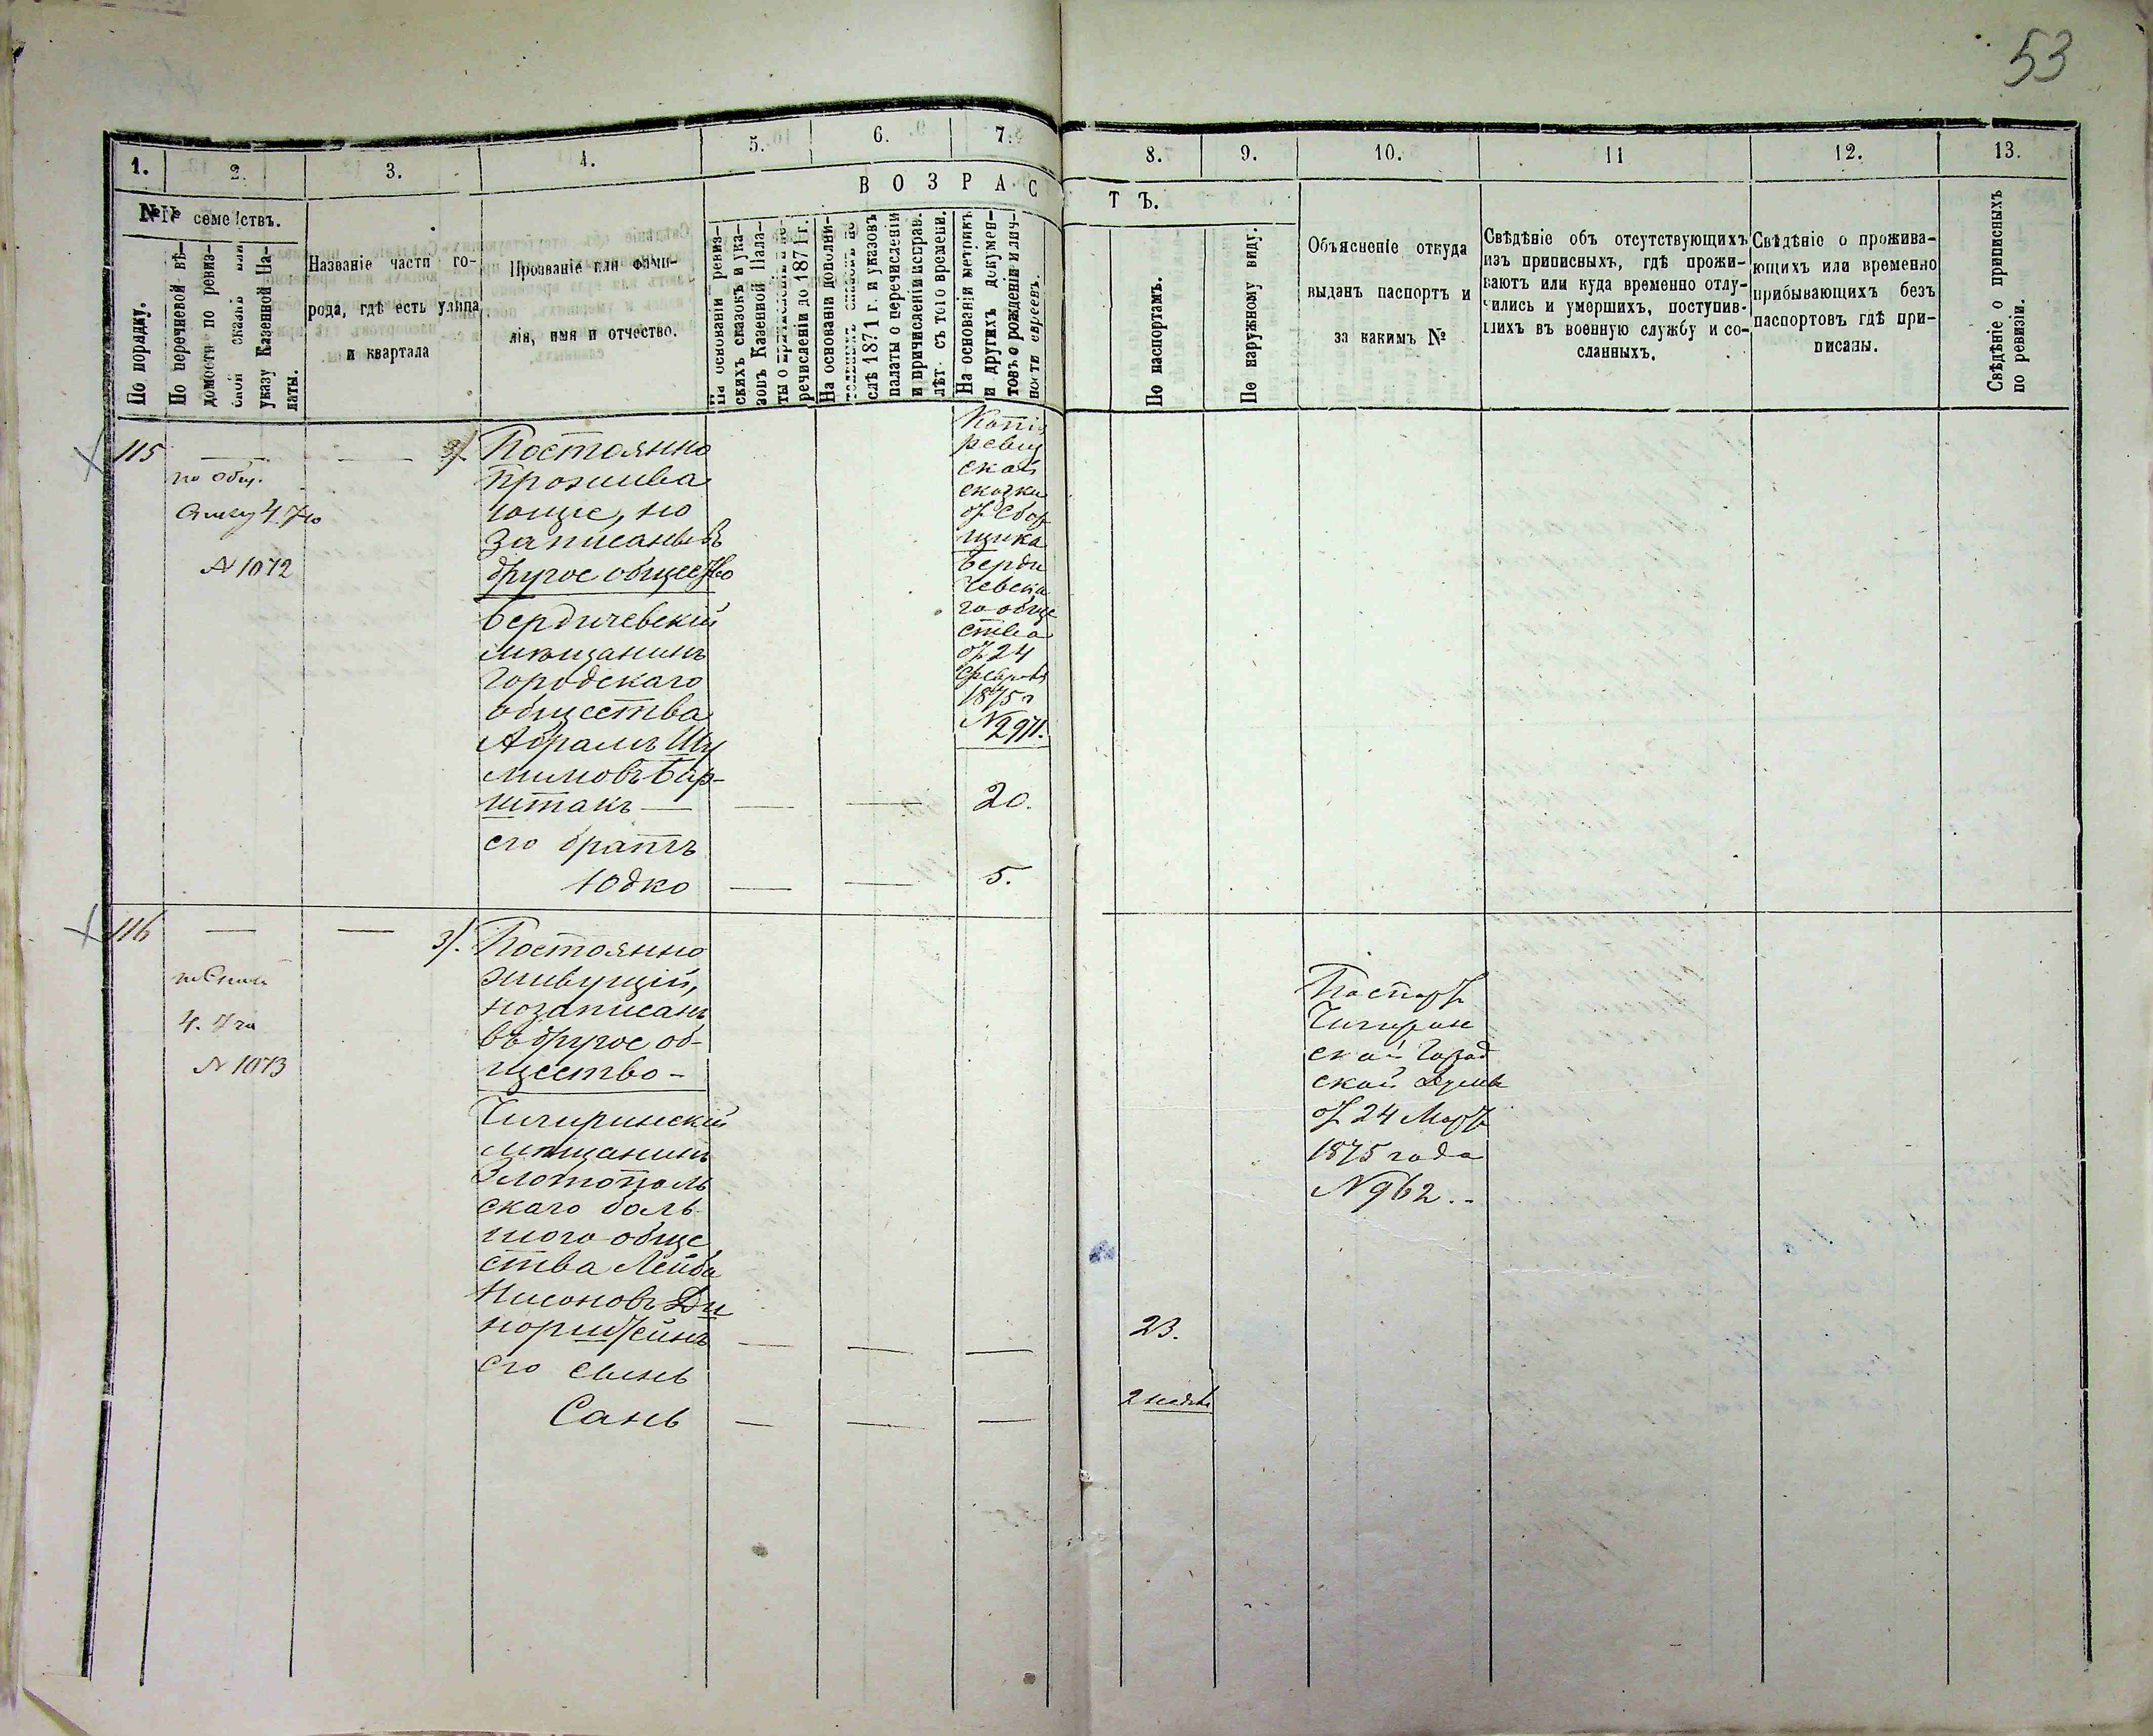 53
1.
2.
3.
4.
5.
6.
7.
8.
9.
10.
11
12.
13.
ВОЗРАС
ТЪ.
№№ семействъ.
По порядку.
По перечневой вѣ-
домости по ревиз-
ской сказкѣ или
указу Казенной Па-
латы.
Названіе части го-
рода, гдѣ есть улица
и квартала
Прозваніе или фами-
лія, имя и отчество.
На основаніи ревиз-
скихъ сказокъ и ука-
зовъ Казенной Пала-
ты о
речисленіи до 1871 г.
На основаніи дополни-
слѣ 1871 г. и указовъ
палаты о перечисленіи
и причисленіи исправ.
лѣт. съ того времени.
На основаніи метрикъ
и другихъ докумен-
товъ о рожденіи и лич-
ности евреевъ.
По паспортамъ.
По наружному виду.
Объясненіе откуда
выданъ паспортъ и
за какимъ №
Свѣдѣніе объ отсутствующихъ
изъ приписныхъ, гдѣ прожи-
ваютъ или куда временно отлу-
чились и умершихъ, поступив-
шихъ въ военную службу и со-
сланныхъ.
Свѣдѣніе о прожива-
ющихъ или временно
прибывающихъ безъ
паспортовъ гдѣ при-
писаны.
Свѣдѣніе о приписныхъ
по ревизіи.
115
по общ.
Списку Ч. 7ю
№ 1072
3/. Постоянно
прожива
ющіе, но
записаны въ
другое общество
Бердичевскій
мѣщанинъ
Городскаго
общества
Абрамъ Шу
лимовъ Бар-
штакъ
его братъ
Юдко
Копія
ревиз
ской
сказки
от Сбор
щика
Берди
чевска
го обще
ства
от 24
Февраля
1875 г
№ 2971.
20.
5.
116
по Списк
Ч. 7га
№ 1073
3/. Постоянно
живущій,
но записанъ
въ другое об-
щество -
Чигиринскій
мѣщанинъ
Златополь
скаго боль
шого обще
ства Лейба
Нисоновъ Ди
норштейнъ
его сынъ
Сань
23.
2 недѣл
Паспортъ
Чигирин
ской Город
ской Думы
от 24 Март
1875 года
№ 962.